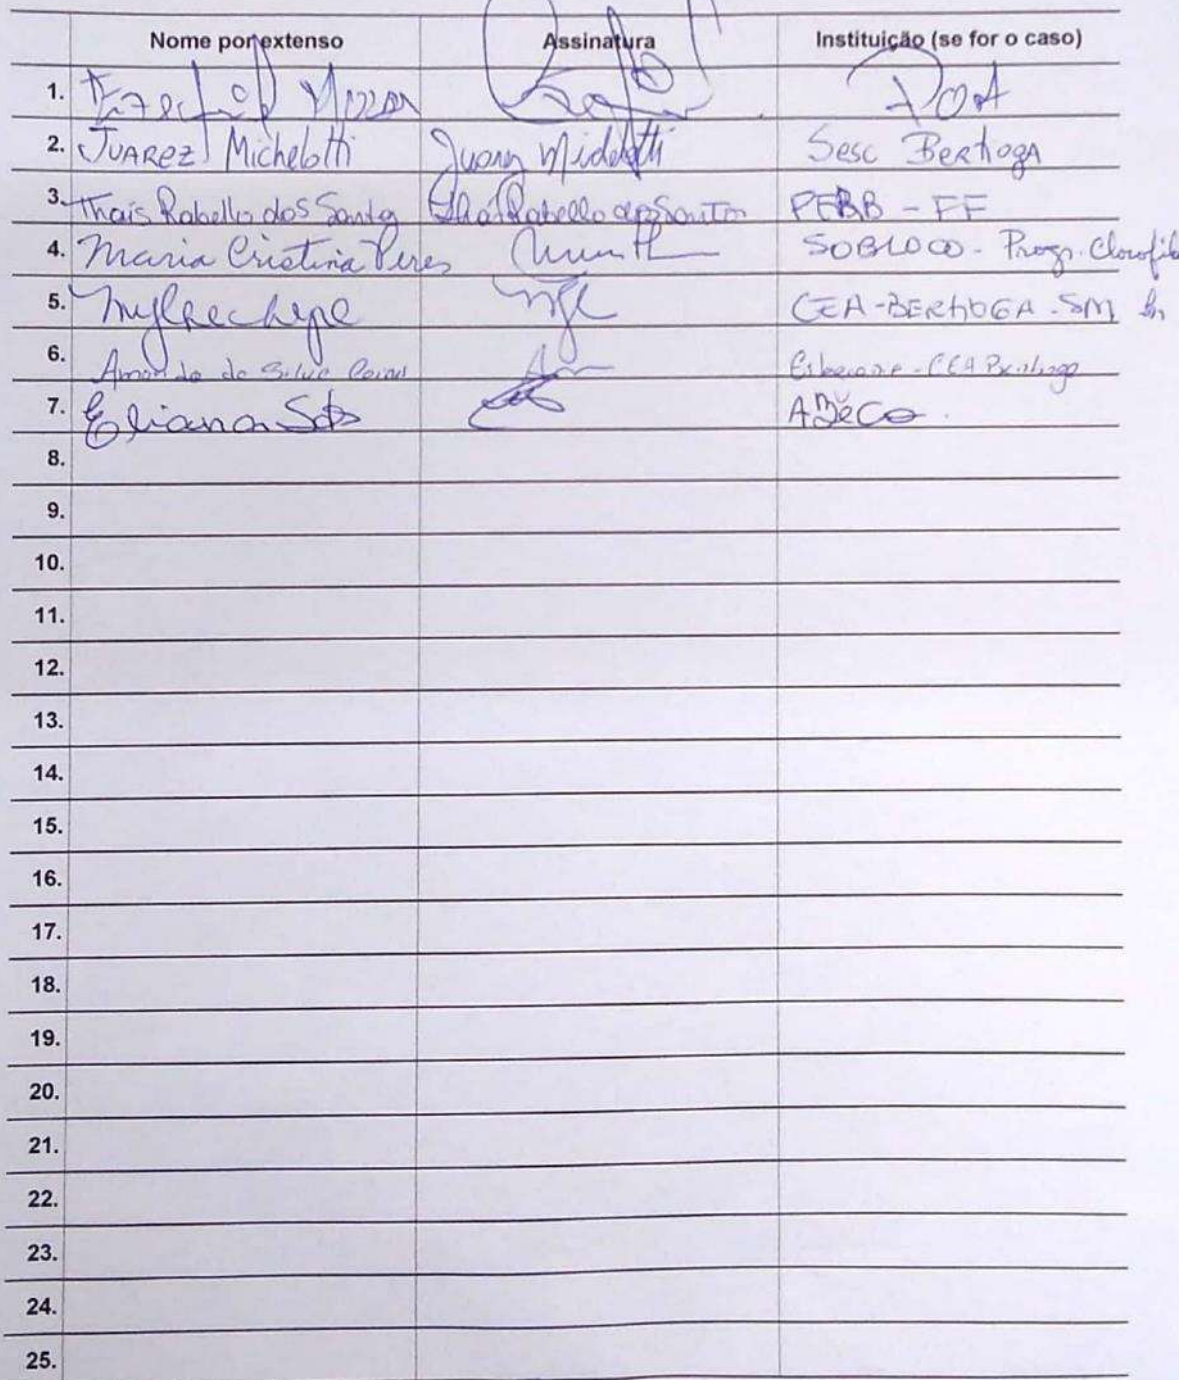 Nome por extenso Assinatura Instituição (se for o caso)
1. POA
2. JUAREZ Michelotti Juarez Michelotti Sesc Bertioga
3. Thais Rabello dos Santos Thais Rabello dos Santos PERB - FF
4. Maria Cristina Peres SOBLOCO - Progr. Clorofila
5. CEA-BERTIOGA - SM
6. Amanda da Silva CEA Bertioga
7. Eliana
8.
9.
10.
11.
12.
13.
14.
15.
16.
17.
18.
19.
20.
21.
22.
23.
24.
25.